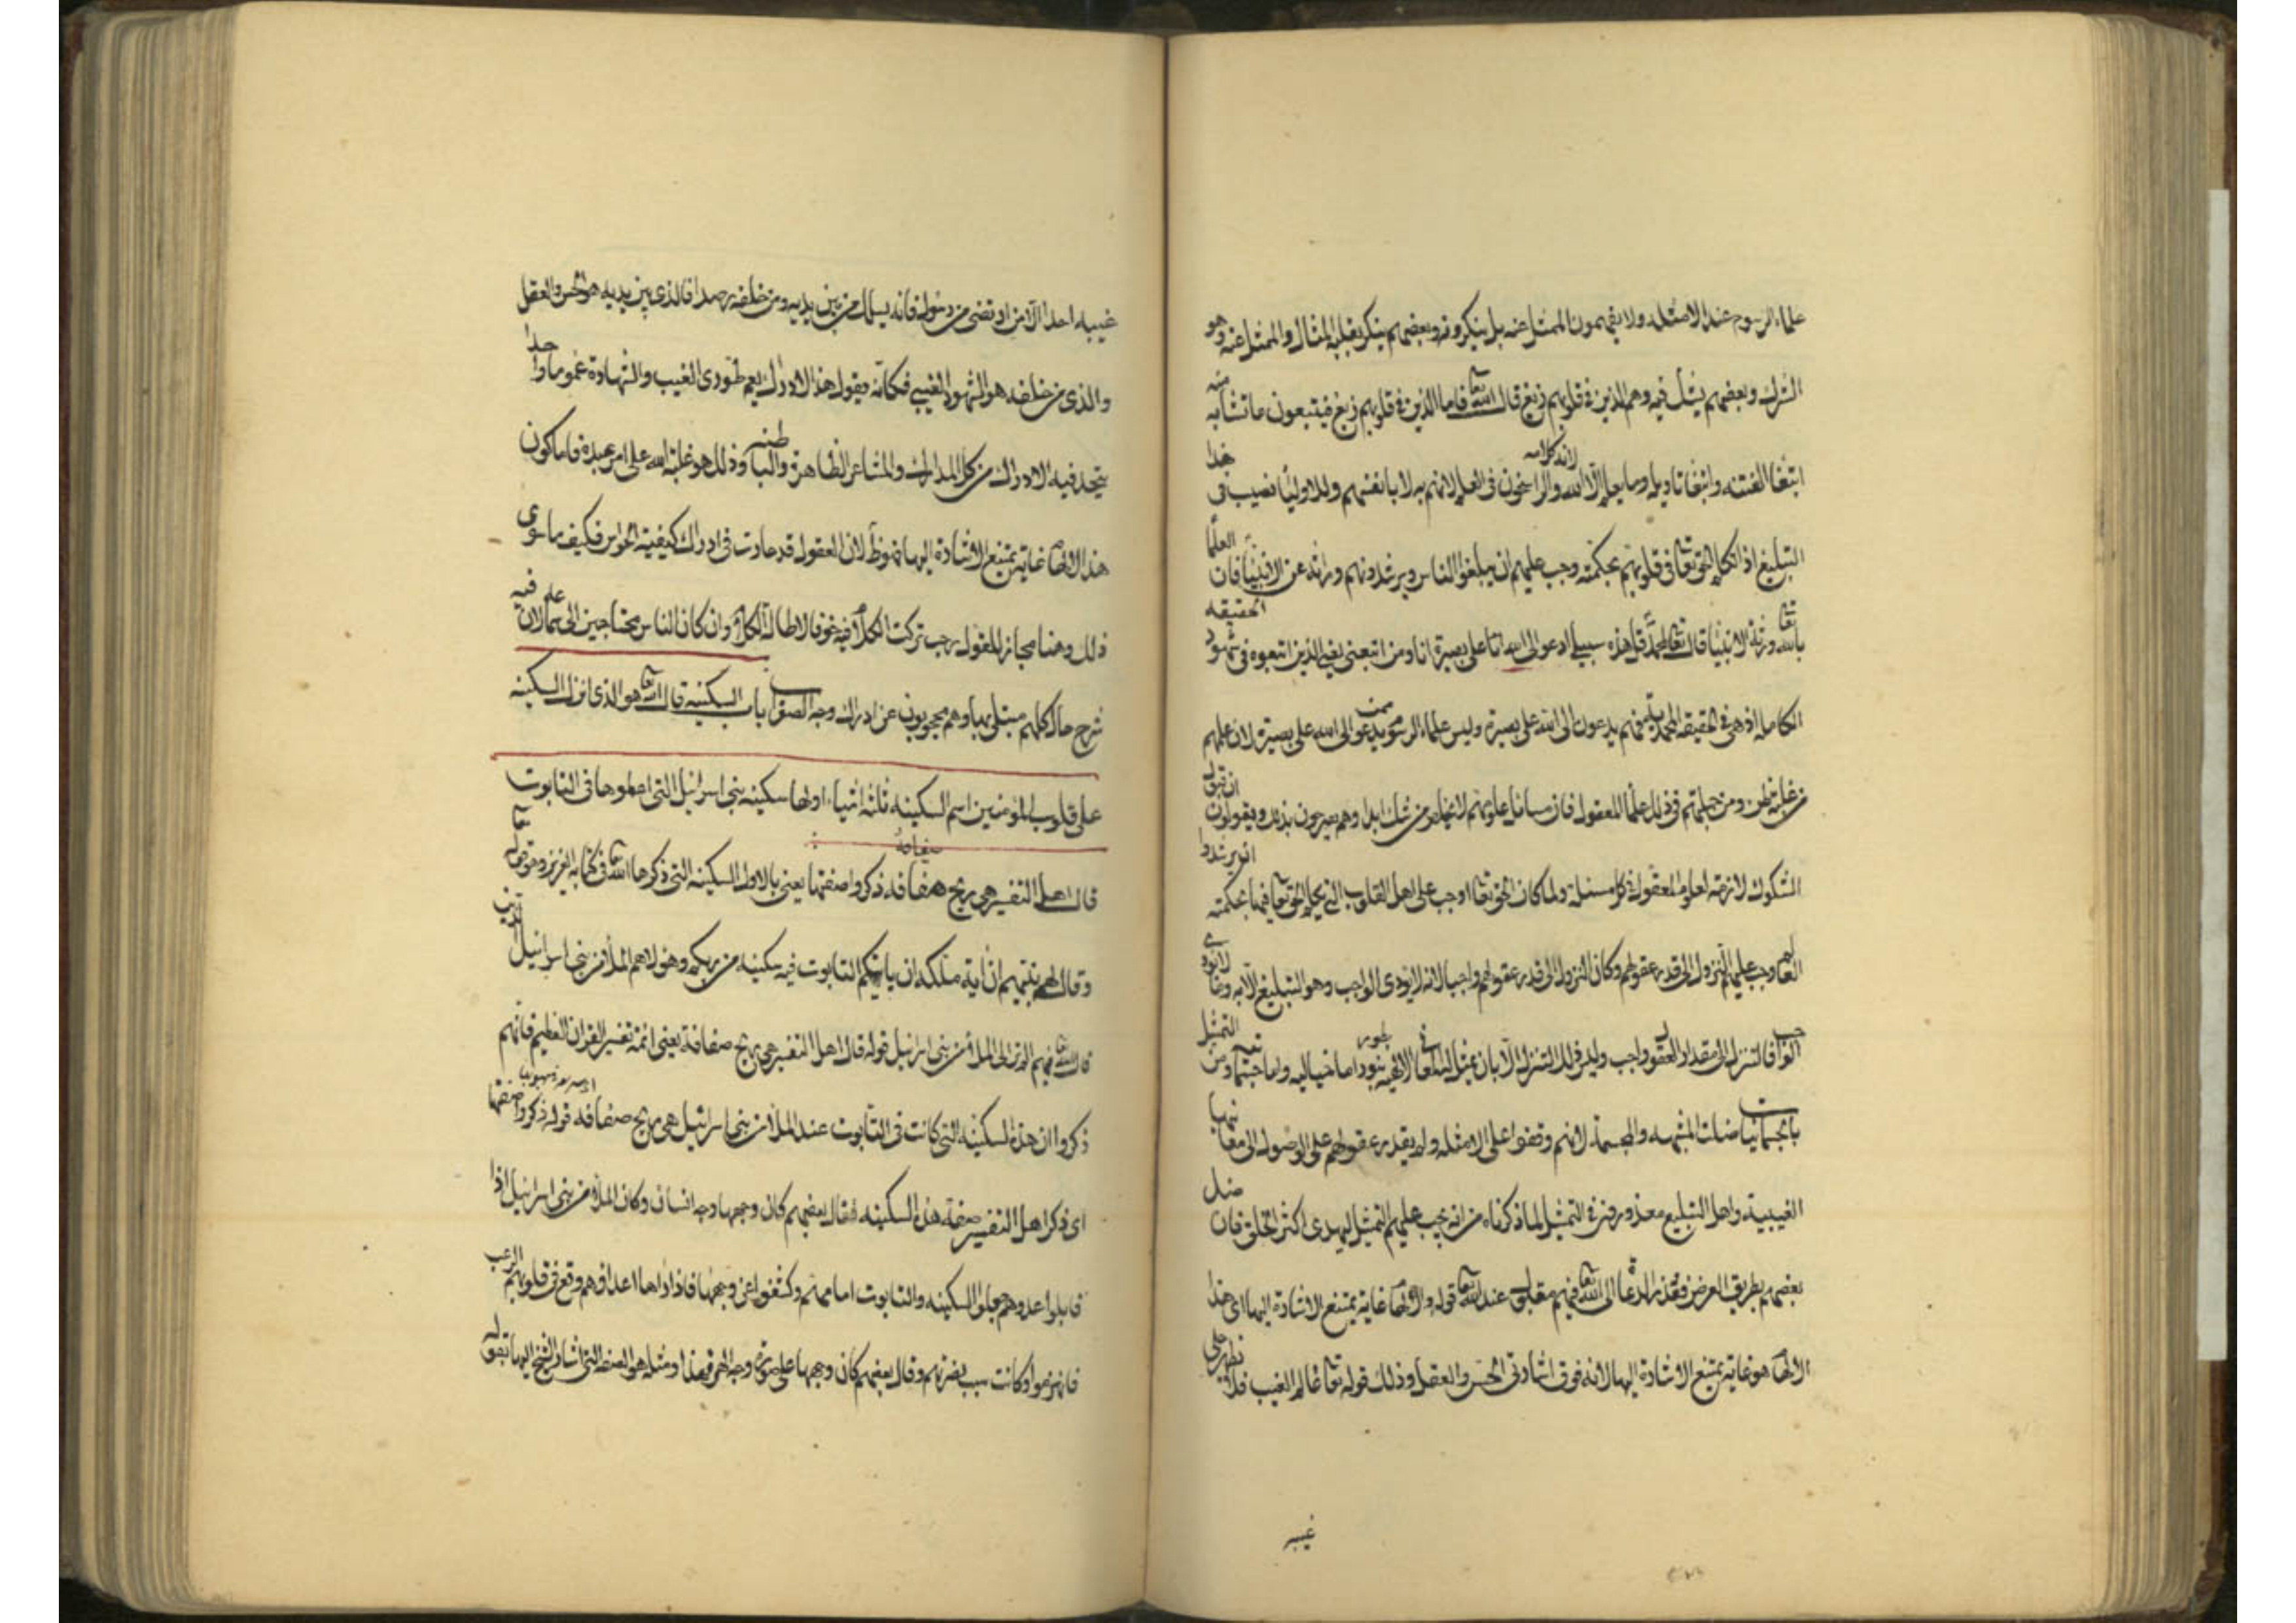 علماء الرسوم عند الامثله ولا يفهمون الممثل عنه بل ينكرونه وبعضهم ينكر بقلبه المثال والممثل عنه وهو
الشرك وبعضهم يشك فيه وهم الذين في قلوبهم زيغ قال الله تعا فاما الذين في قلوبهم زيغ فيتبعون ما تشابه منه
ابتغا الفتنه وابتغا تاويله وما يعلم تاويله الا الله والراسخون في العلم لانهم به لا بانفسهم وللاوليا نصيب في هذا
التبليغ اذا تكلم الحق تعا في قلوبهم بحكمته وجب عليهم ان يبلغوا الناس ويرشدونهم وراثه عن الانبيا فان العلما
بالله تعا ورثة الانبيا قال تعا لمحمد قل هذه سبيلي ادعو الى الله على بصيرة انا ومن اتبعني يعني الذين اتبعوه في شهود الحقيقه
الكامله اذ هي الحقيقه المحمديه فهم يدعون الى الله على بصيرة وليس علماء الرسوم ممن يدعو الى الله على بصيرة لان علمهم
من غلبة ظن ومن جملتهم في ذلك علما المعقول فان مسائل علومهم لا تخلو من شك ابدا وهم يصرحون بذلك ويقولون ان قبول
الشكوك لازمة لعلوم المعقول في كل مسئلة ولما كان الحق تعا اوجب على اهل القلوب التي تكلم الحق تعا فيها بحكمته ان يرشدوا
العالم وجب عليهم التنزل الى قدر عقولهم وكان النزول الى قدر عقولهم واجبا لانه لا يودى الواجب وهو التبليغ الا به وما لا يودى
الواجب الا به فالتنزل الى مقدار العقول واجب وليس ذلك التنزل الا بان يمثل المعاني الالهيه بصور اما خياليه واما حسيه ومن التمثيل
بالجسمانيات ضلت المشبهه والمجسمة لانهم وقفوا على الامثله ولم يقدر عقولهم على الوصول الى معانيها
الغيبية واهل التبليغ معذورون في التمثيل لما ذكرناه من انه يجب عليهم التمثيل ليهدى اكثر الخلق فان ضل
بعضهم بطريق العرض فقد نرا الدعاة الى الله تعا فهم مقبلون عند الله تعا قوله والالهام غاية يمتنع الاشارة اليها اي هذا
الالهام هو غاية يمتنع الاشارة اليها لانه فوق اشارتي الحس والعقل وذلك قوله تعا عالم الغيب فلا يظهر على
غيبه
غيبه احدا الا من ارتضى من رسول فانه يسلك من بين يديه ومن خلفه رصدا فالذي بين يديه هو الحس والعقل
والذي من خلفه هو الشهود الغيبي فكانه يقول هذا الادراك يعم طوري الغيب والشهادة عموما واحدا
يتحد فيه الادراك من كل المدارك والمشاعر الظاهرة والباطنه وذلك هو غلبة الله على امر عبده فاما كون
هذا الالهام غاية يمتنع الاشارة اليها فهو ظ لان العقول قد حارت في ادراك كيفية الحواس فكيف ما سوى
ذلك وهنا مجاز للقول رحب تركت الكلام فيه خوفا لاطالة الكلام وان كان الناس محتاجين الى علم ما فيه لان
شرح حال كلهم مبتلى بها وهم محجوبون عن ادراك وجه الصواب باب السكينه قال الله تعا هو الذي انزل السكينه
على قلوب المؤمنين اسم السكينه ثلثه اشياء اولها سكينه بني اسرائيل التي اعطوها في التابوت
قال اهل التفسير هي ريح هفافه ذكروا صفتها يعني بالاول السكينه التي ذكرها الله تعا في كتابه العزيز وهو قوله تعا
وقال لهم نبيهم ان اية ملكه ان ياتيكم التابوت فيه سكينه من ربكم وهولاء هم الملأ من بني اسرائيل الذين
قال الله تعا فيهم الم تر الى الملأ من بني اسرائيل قوله قال اهل التفسير هي ريح صفافة يعني ائمة تفسير القران العظيم فانهم
ذكروا ان هذه السكينه التي كانت في التابوت عند الملأ من بني اسرائيل هي ريح صفافه قوله ذكروا صفتها
اى ذكر اهل التفسير صفة هذه السكينه فقال بعضهم كان وجهها وجه انسان وكان الملأ من بني اسرائيل اذا
قابلوا عدوهم جعلوا السكينه والتابوت امامهم وكشفوا عن وجهها فاذا راها اعداؤهم وقع في قلوبهم الرعب
فانهزموا وكانت سبب نصرتهم وقال بعضهم كان وجهها على صورة وجه الهر فهذا ومثله هو الصفه التي اشار الشيخ اليها بقوله